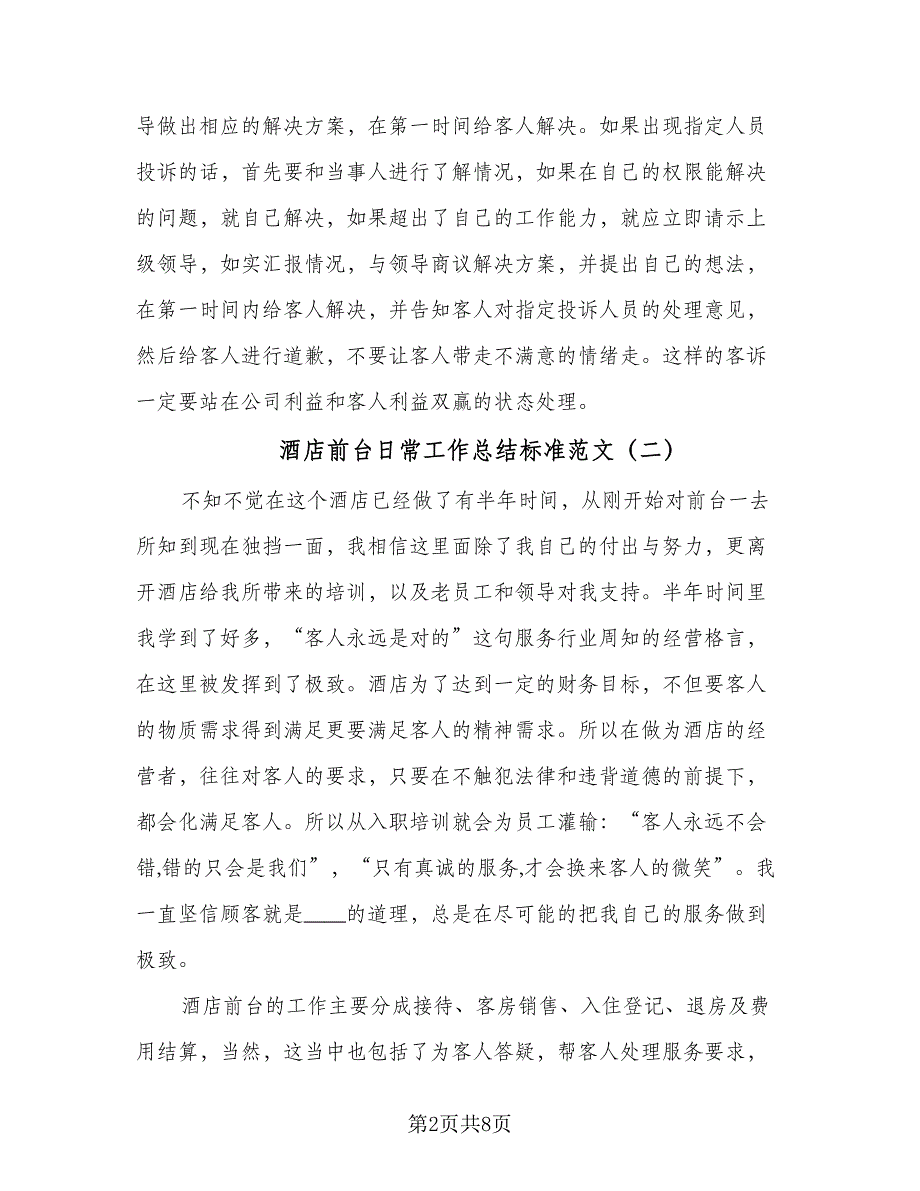 导做出相应的解决方案，在第一时间给客人解决。如果出现指定人员
投诉的话，首先要和当事人进行了解情况，如果在自己的权限能解决
的问题，就自己解决，如果超出了自己的工作能力，就应立即请示上
级领导，如实汇报情况，与领导商议解决方案，并提出自己的想法，
在第一时间内给客人解决，并告知客人对指定投诉人员的处理意见，
然后给客人进行道歉，不要让客人带走不满意的情绪走。这样的客诉
一定要站在公司利益和客人利益双赢的状态处理。
酒店前台日常工作总结标准范文（二）
不知不觉在这个酒店已经做了有半年时间，从刚开始对前台一去
所知到现在独挡一面，我相信这里面除了我自己的付出与努力，更离
开酒店给我所带来的培训，以及老员工和领导对我支持。半年时间里
我学到了好多，“客人永远是对的”这句服务行业周知的经营格言，
在这里被发挥到了极致。酒店为了达到一定的财务目标，不但要客人
的物质需求得到满足更要满足客人的精神需求。所以在做为酒店的经
营者，往往对客人的要求，只要在不触犯法律和违背道德的前提下，
都会化满足客人。所以从入职培训就会为员工灌输：“客人永远不会
错,错的只会是我们”，“只有真诚的服务,才会换来客人的微笑”。我
一直坚信顾客就是____的道理，总是在尽可能的把我自己的服务做到
极致。
酒店前台的工作主要分成接待、客房销售、入住登记、退房及费
用结算，当然，这当中也包括了为客人答疑，帮客人处理服务要求，
第2页共8页